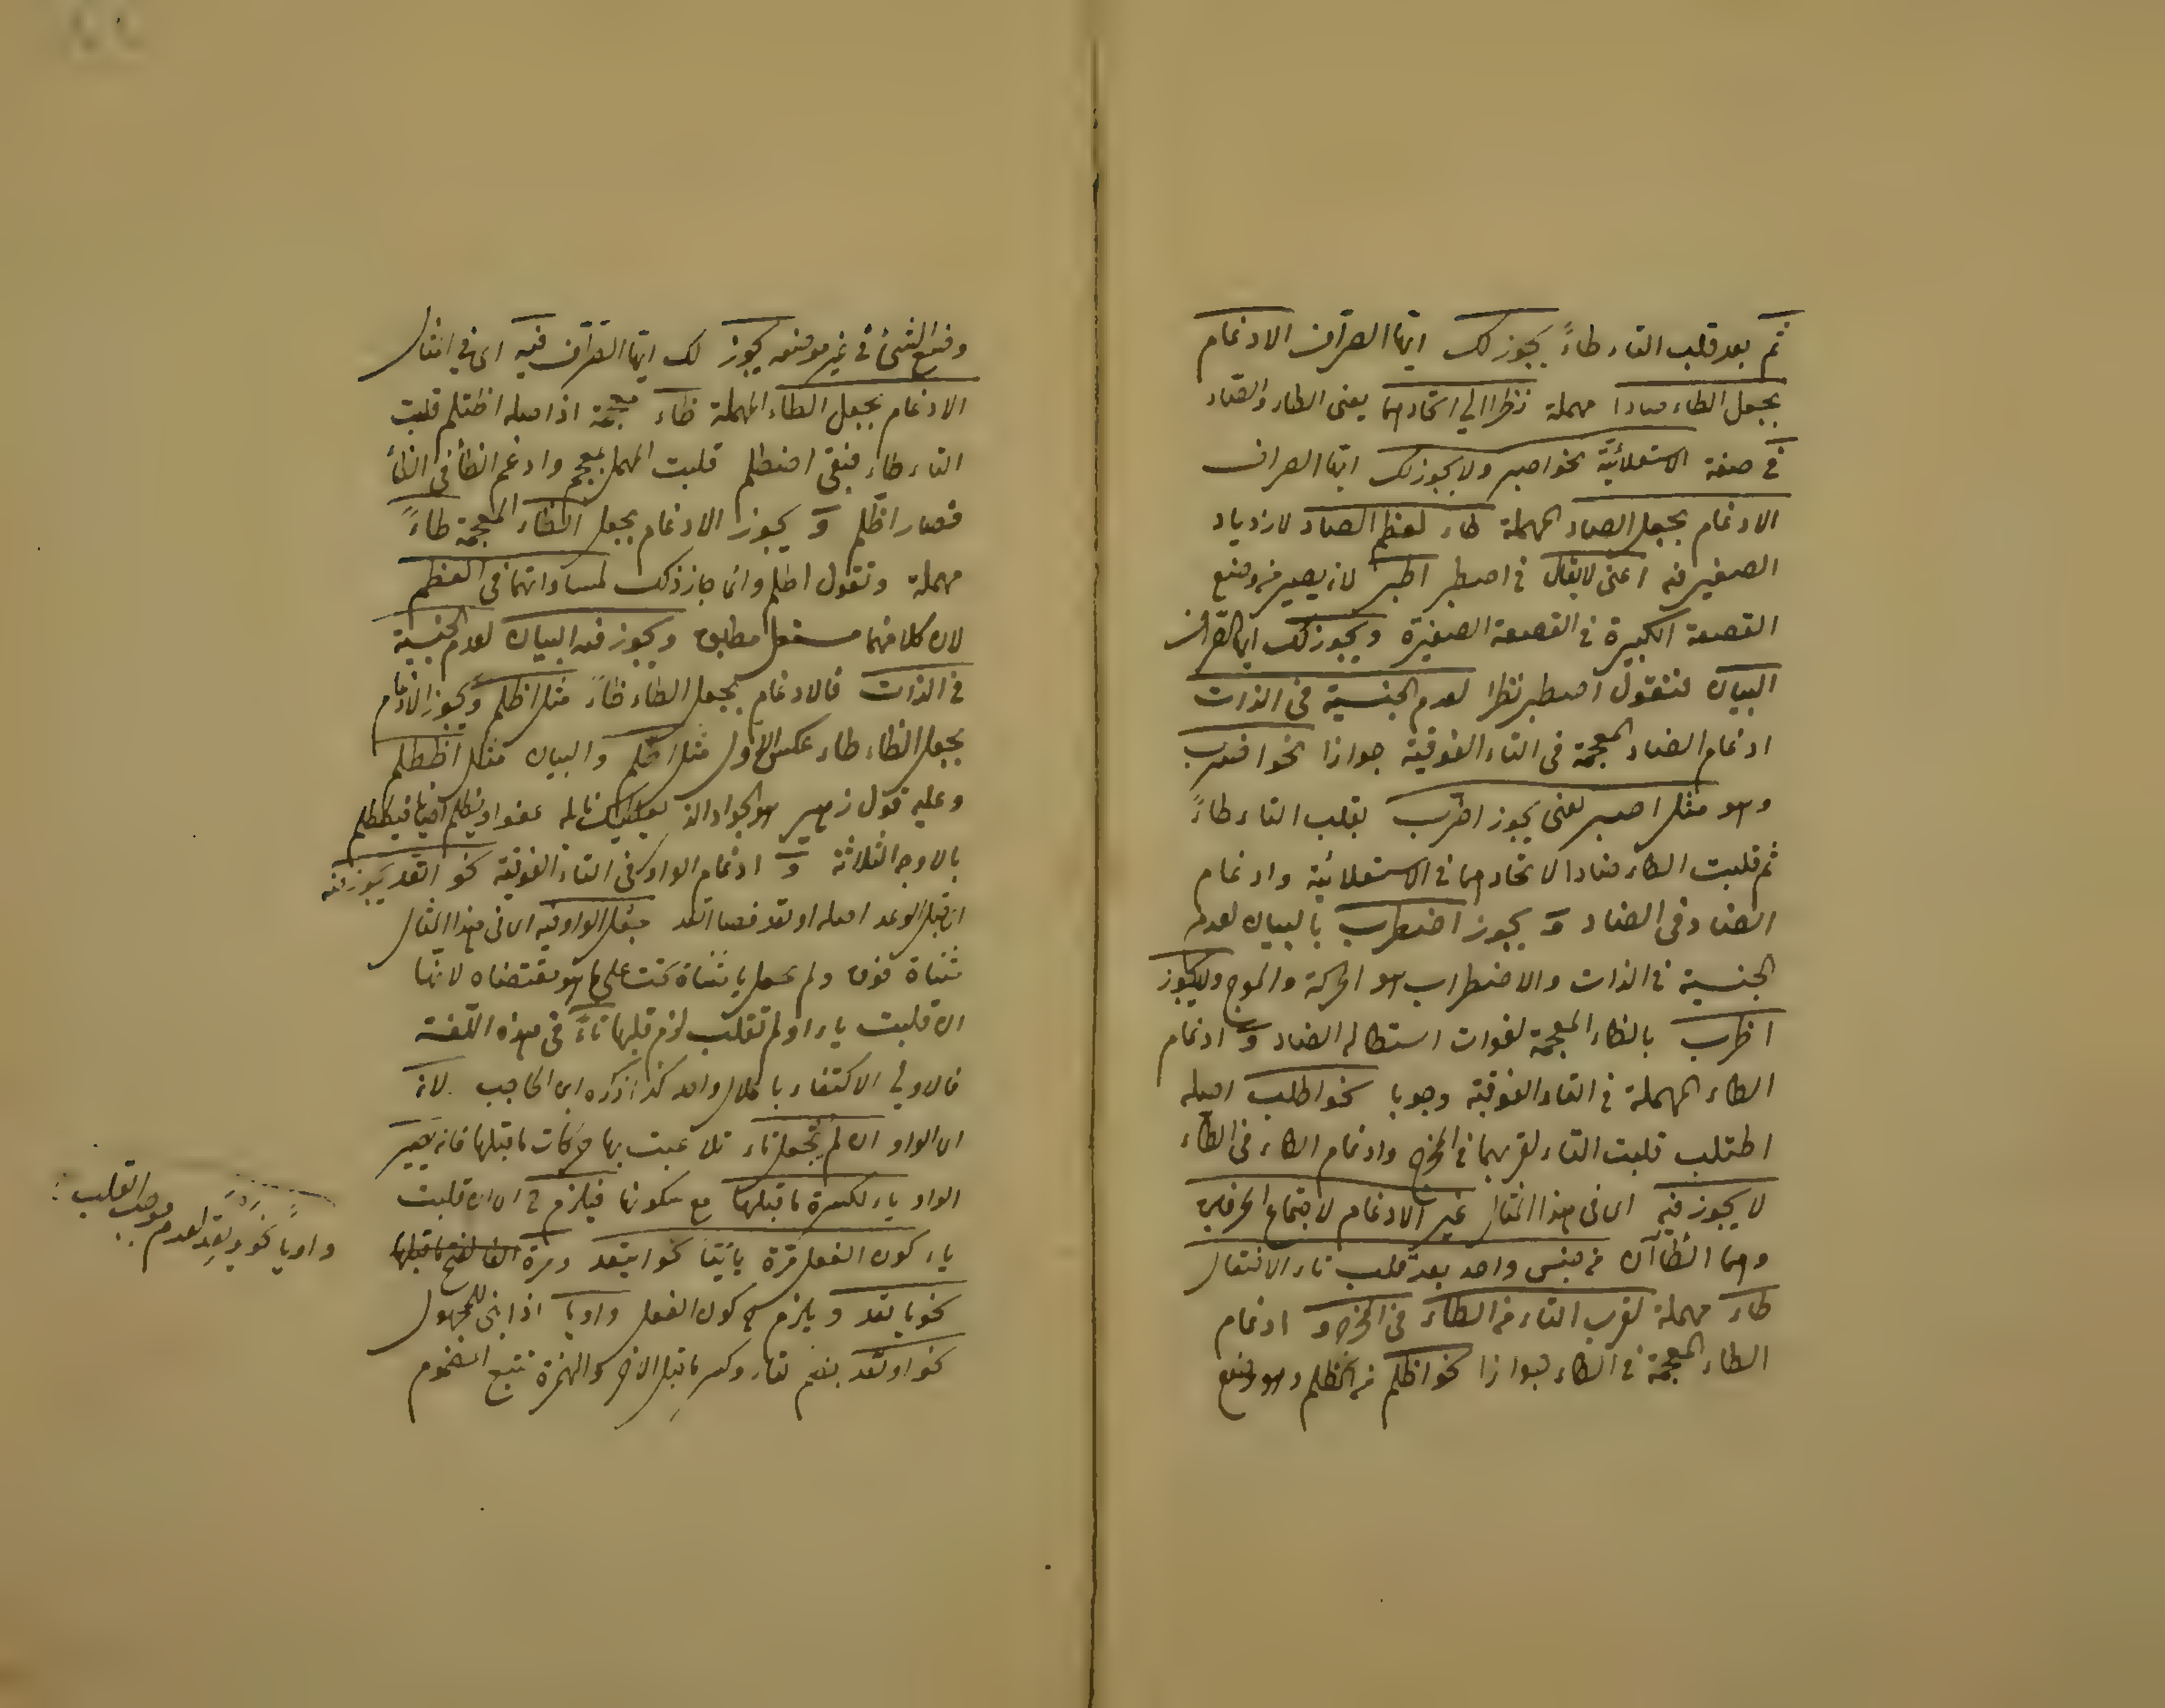 ثم بعد قلب التاء طاءً يجوز لك ايها الصراف الادغام
بجعل الطاء صادا مهملة نظرا الى اتحادهما يعنى الطاء والصاد
فى صفة الاستعلائيّة نحو اصبر ولا يجوز لك ايها الصراف
الادغام بجعل الصاد المهملة طاء لعظم الصاد لازدياد
الصفير فيه اعنى لا يقال فى اصطبر اطبر لانه يصير من وضع
القصعة الكبيرة فى القصعة الصغيرة ويجوز لك ايها الصراف
البيان فتقول اصطبر نظرا لعدم الجنسية فى الذات
ادغام الضاد المعجمة فى التاء الفوقية جوازا نحو اضرب
وهو مثل اصبر يعنى يجوز اضرب بقلب التاء طاءً
ثم قلبت الطاء ضادا لاتحادهما فى الاستعلائية وادغام
الضاد فى الضاد و يجوز اضطرب بالبيان لعدم
الجنسية فى الذات والاضطراب هو الحركة والموج ولا يجوز
اطرب بالطاء المعجمة لفوات استطالة الضاد و ادغام
الطاء المهملة فى التاء الفوقية وجوبا نحو اطلب اصله
اطتلب قلبت التاء لقربهما فى المخرج وادغام الطاء فى الطاء
لا يجوز فيه اى فى هذا المثال غير الادغام لاجتماع الحرفين
وهما الطاآن من جنس واحد بعد قلب تاء الافتعال
طاء مهملة لقرب التاء من الطاء فى المخرج و ادغام
الظاء المعجمة فى الطاء جوازا نحو اظلم من اظطلم وهو وضع
وضع الشئ فى غير موضعه يجوز لك ايها الصراف فيه اى فى امثال
الادغام بجعل الطاء المهملة ظاء معجمة اذ اصله اظتلم قلبت
التاء طاء فبقى اضطلم قلبت المهمل بمعجم وادغم الظاء فى الظاء
فصار اظّلم و يجوز الادغام بجعل الظاء المعجمة طاءً
مهملة وتقول اطلم وانما جاز ذلك لمساواتهما فى العظم
لان كلا منهما مستعل مطبق ويجوز فيه البيان لعدم الجنسية
فى الذات فالادغام بجعل الطاء ظاءً مثل اظلم ويجوز الادغام
بجعل الظاء طاء عكس الاول مثل اطّلم والبيان مثل اظطلم
وعليه قول زهير هو الجواد الذى يعطيك نائله عفوا ويظلم احيانا فيظطلم
بالاوجه الثلاثة و ادغام الواو فى التاء الفوقية نحو اتّعد يجوز فيه
الوعد اصله اوتعد فصا اتعد بجعل الواو فيه اى فى هذا المثال
مثناة فوق ولم يجعل يا مثناة تحت على ما هو مقتضاه لانها
ان قلبت ياء او لم تقلب لزم قلبها تاءً فى هذه اللغة
فالاولى الاكتفاء باعلال واحد كذا ذكره ابن الحاجب لانه
اى الواو ان لم تجعل تاء تلاعبت بها حركات ما قبلها فانه يصير
الواو ياء لكسرة ما قبلها مع سكونها فيلزم ح اى ان قلبت
ياء كون الفعل مرة يائيّا نحو ايتعد ومرة الفا لفتح ما قبلها
نحو ياتعد ويلزم ح كون الفعل واويا اذا بنى للمجهول
نحو اوتعد بضم تاء وكسر ما قبل الاخر والهمزة تتبع المضموم
واويا نحو يوتعد لعدم موجب القلب